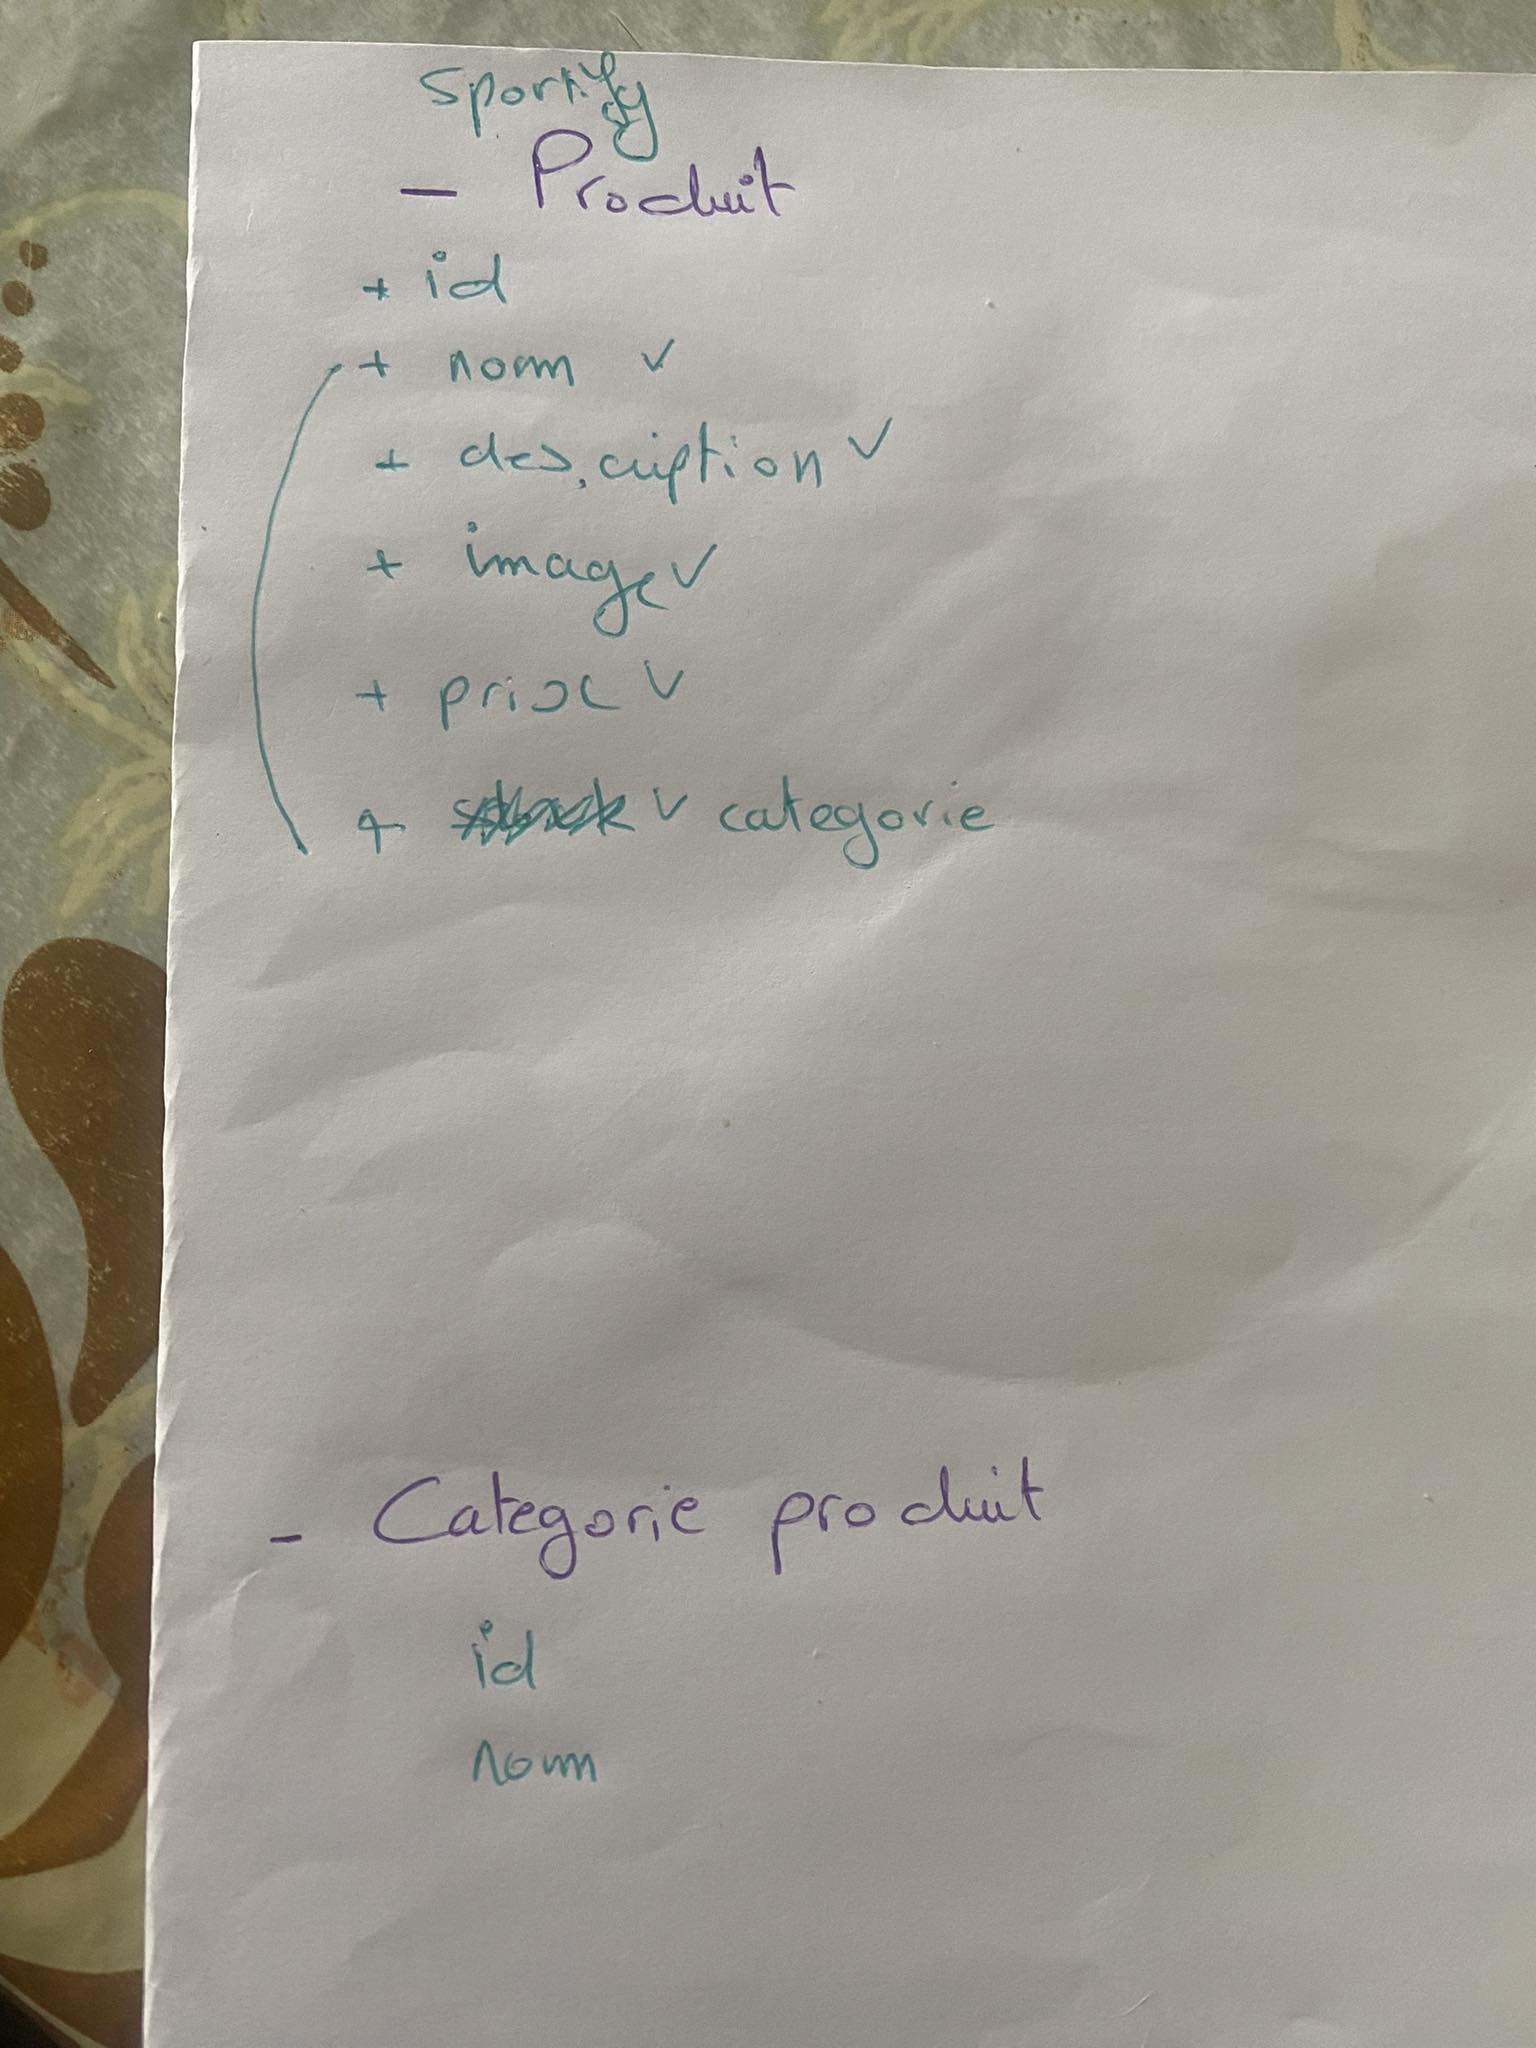 Sportify
- Produit
+ id
+ nom ✓
+ description ✓
+ image ✓
+ prix ✓
+ ✓ categorie
- Categorie produit
id
nom